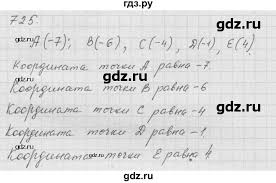 гдз.ру
725.
A(-7); B(-6), C(-4), D(-1), E(4).
Координата точки A равна -7
Координата точки B равна -6
Координата точки C равна -4
Координата точки D равна -1
Координата точки E равна 4
гдз.ру